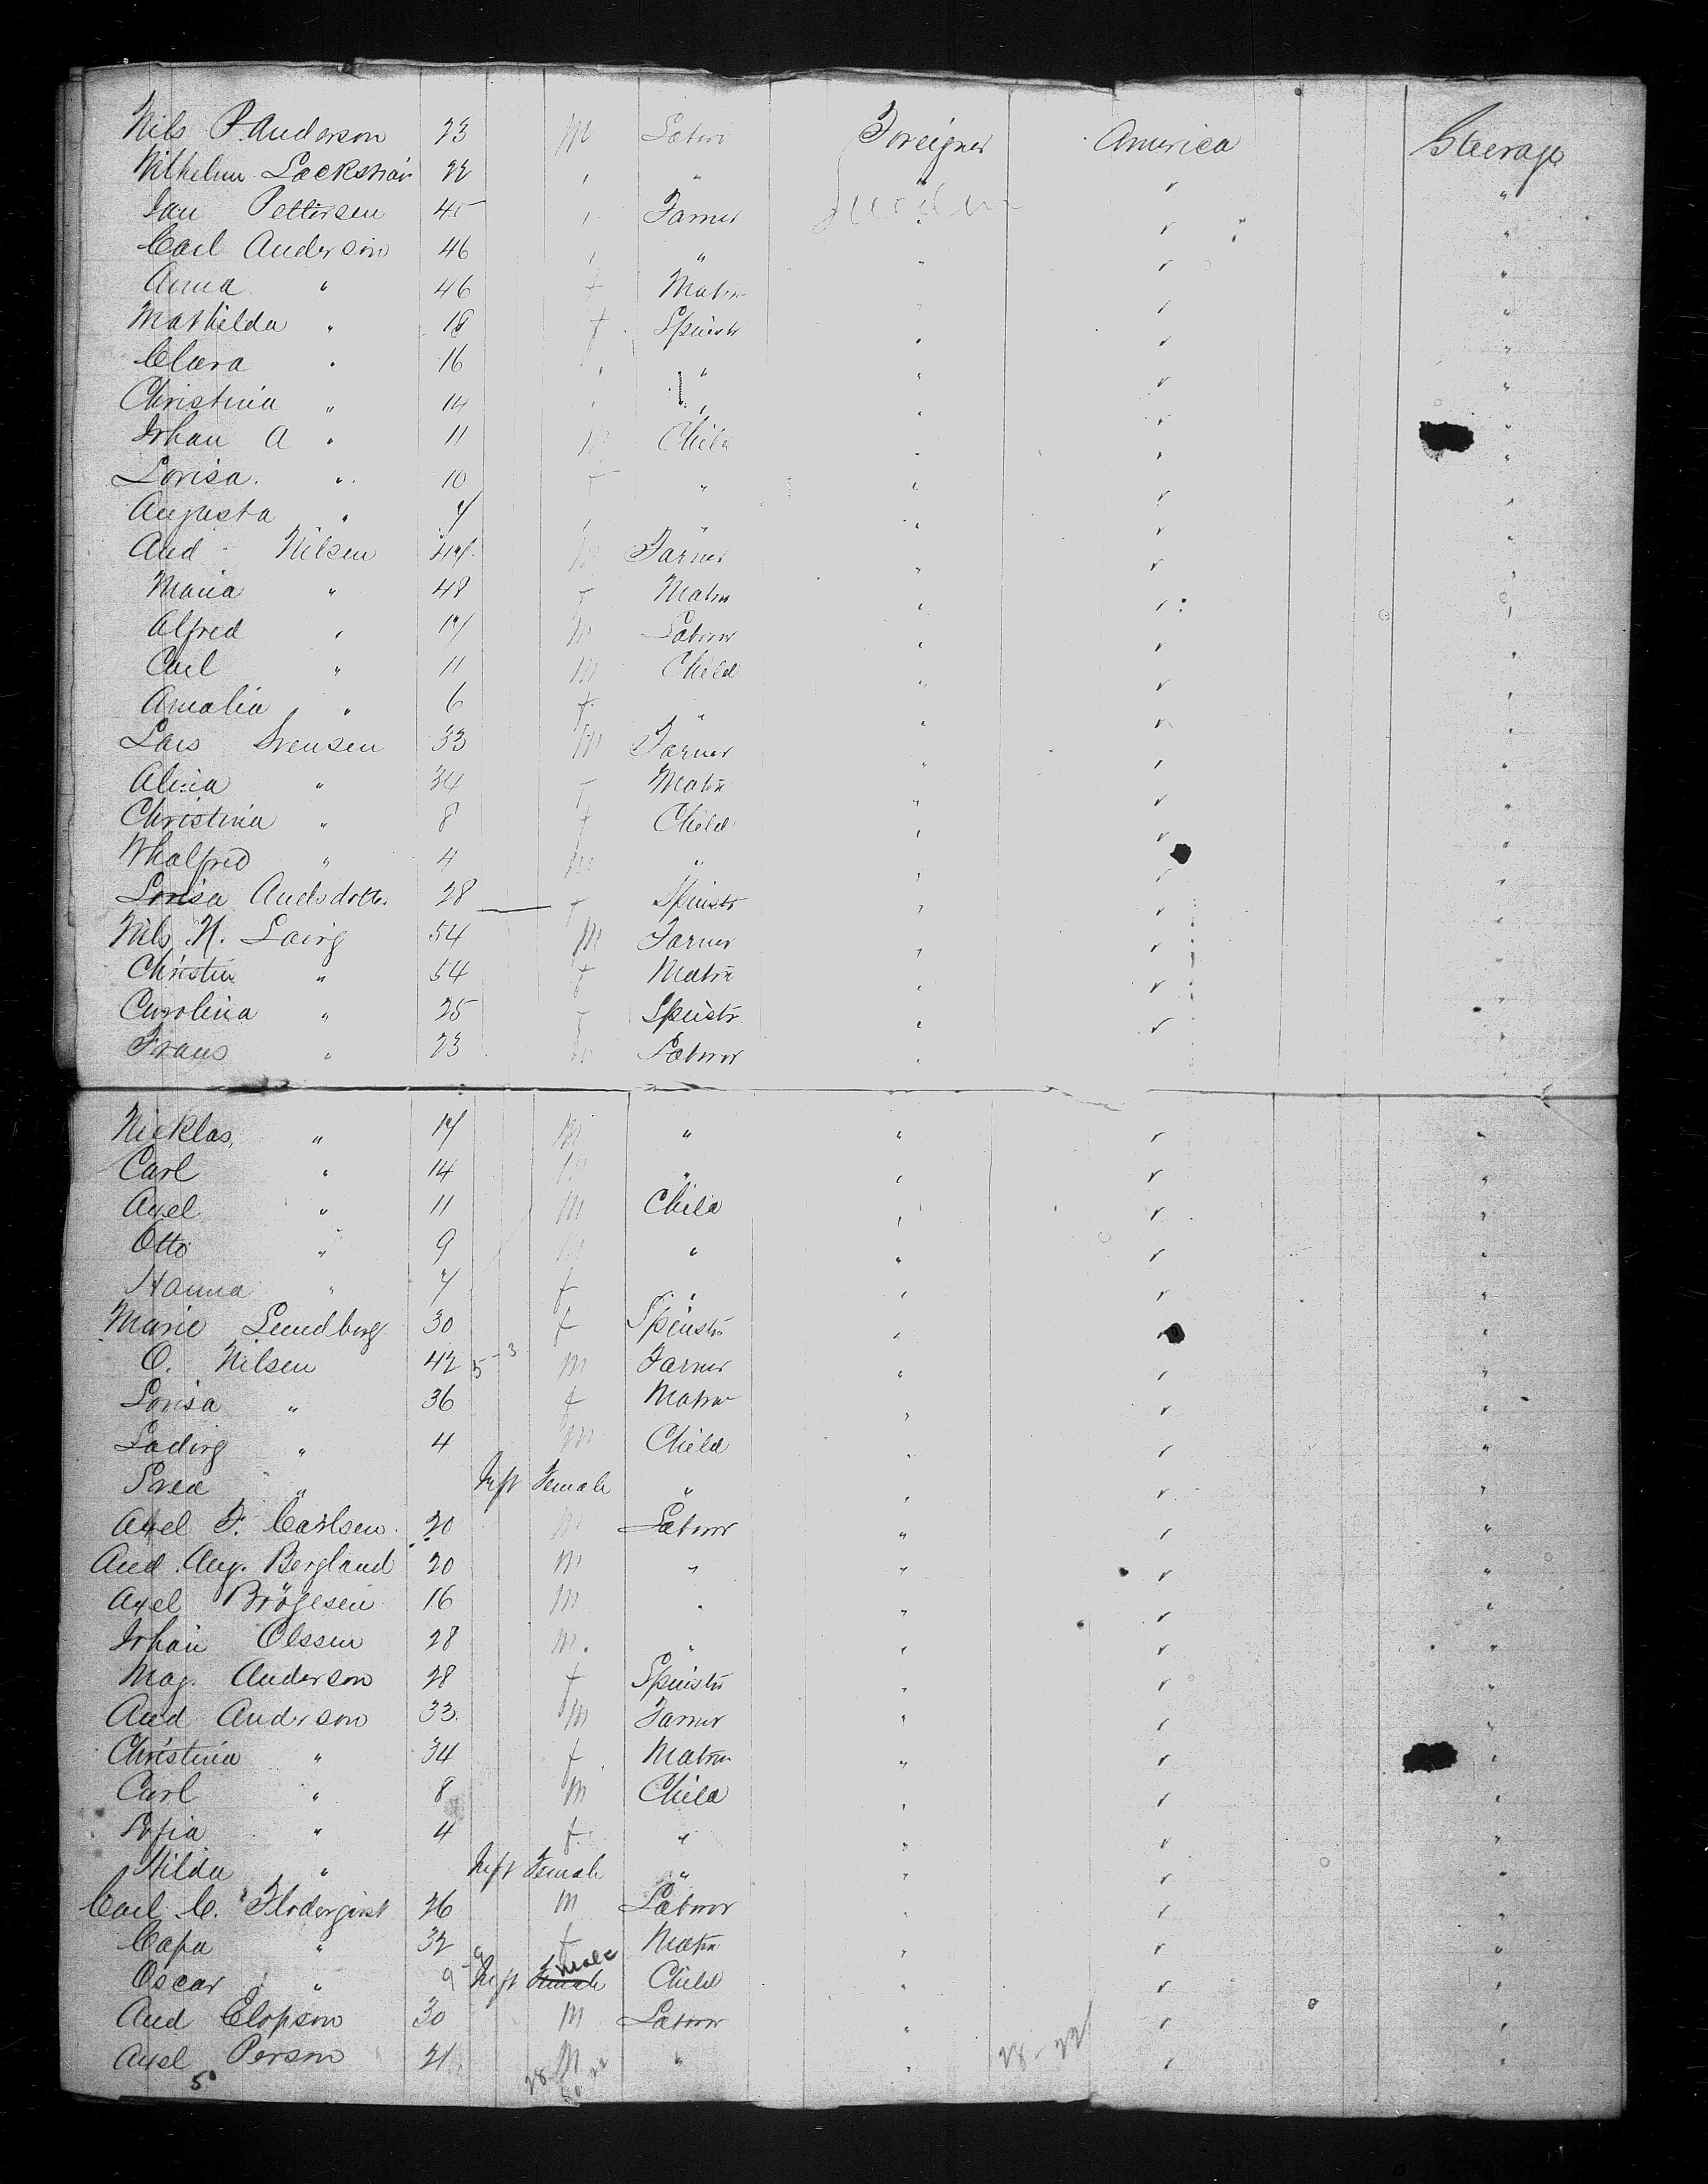 Nils P. Anderson 23 m Labor Foreigner America Steerage
Wilhelm 22 , " " " "
Jan Pettersen 45 , Farmer Sweden " " "
Carl Anderson 46 , " " " "
Anna " 46 f Matrn " " "
Mathilda " 18 f Spinstr " " "
Clara " 16 , " " " "
Christina " 14 , " " " "
Johan A " 11 m Child " " "
Lovisa " 10 f " " " "
Augusta " 7 , " " " "
And Nilsen 47 m Farmer " " "
Maria " 48 f Matrn " " "
Alfred " 17 m Labour " " "
Carl " 11 m Child " " "
Amalia " 6 f " " " "
Lars Svensen 33 m Farmer " " "
" 34 f Matrn " " "
Christina " 8 f Child " " "
Whalfred " 4 m " " " "
Lovisa Andsdottr. 28 f Spinstr " " "
Nils N. 54 m Farmer " " "
Christin " 54 f Matrn " " "
Carolina " 25 f Spinstr " " "
Frans " 23 m Labour " " "
Nicklas " 17 m " " " "
Carl " 14 m " " " "
Axel " 11 m Child " " "
Otto " 9 m " " " "
Hanna " 7 f " " " "
Marie Lundberg 30 f Spinstr " " "
O. Nilsen 42 5-3 m Farmer " " "
Lovisa " 36 f Matrn " " "
" 4 m Child " " "
Svea " Inft Female " " " "
Axel F. Carlsen 20 m Labour " " "
And. Aug. Bergland 20 m " " " "
Axel Brögesen 16 m " " " "
Johan Olssen 28 m. " " " "
Mag. Anderson 28 f Spinstr " " "
And Anderson 33 m Farmer " " "
Christina " 34 f Matrn " " "
Carl " 8 m Child " " "
Sofia " 4 f " " " "
Hilda " Inft Female " " " "
Carl C. Floderqvist 26 m Labour " " "
" 32 f Matrn " " "
Oscar " 9 Inft Female Male Child " " "
And 30 m Labour " " "
Axel Person 21 m " " 28-22 " "
50 28 22
50